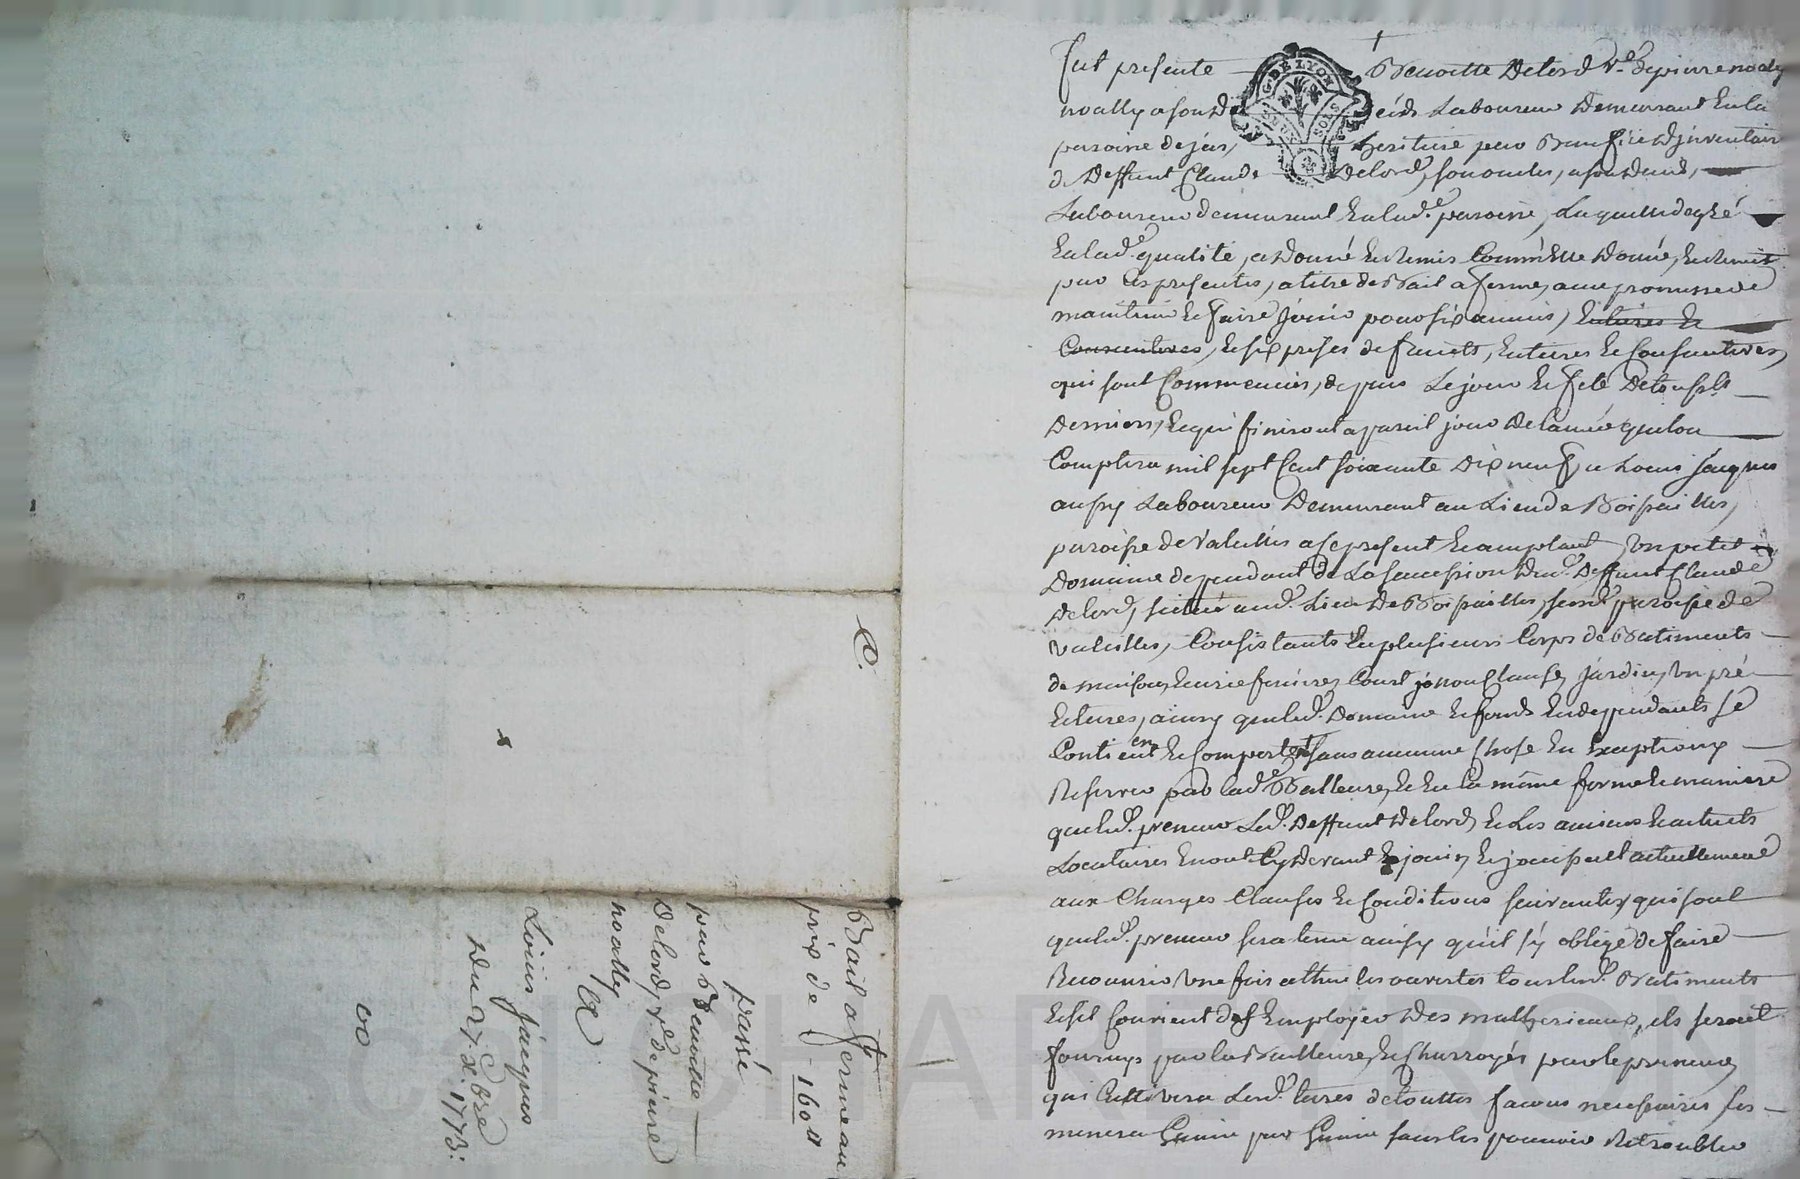 Fut presente Benoitte Delord v.e de pierre noally
noally a son d laboureur Demeurant en la
paroisse de jas, heritiere par Benefice D'jnventaire
de Deffunt Claude Delord, son oncle, a son vivant,
Laboureur demeurant en lad.e paroisse, Laquelle de gré
En lad.e qualité, a Donné et Remis Comm'Elle Donne, et Remet
par Ces presentes, a titre de Bail a ferme, avec promesse de
maintenir et faire jouir pour six années, entieres et
Consecutives, et six prises de fruits, entieres et Consecutives,
qui sont Commencées, depuis Le jour et fete De toussts
Derniers, et qui finiront a pareil jour De l'année que lon
Comptera mil sept Cent soixante Dix neuf, a Louis jacques
aussy Laboureur Demeurant au Lieu de Boispailles,
paroisse de Valeilles a ce present et acceptant, Un petit
Domaine dependant de La succession Dud. Deffunt Claude
Delord, scitué aud. Lieu De Boispailles, susd. paroisse de
valeilles, Consistants En plusieurs Corps de Batiments
de maison, Ecurie feniere, Court, Jardin, Un pré
Et terres, ainsy que led. Domaine et fonds En dependants se
Contient et Comporte sans aucune Chose En Exception
Reserver par lad.e Bailleuse, et En la même forme et maniere
que led. preneur Led. Deffunt Delord, et Les anciens et actuels
Locataires En ont Cy devant joui, et jouissent actuellement
aux Charges Clauses et Conditions suivantes, qui sont
que led. preneur sera tenu ainsy qu'il s'y oblige de faire
Recouvrir Une fois a tuiles ouvertes tous lesd. Batiments
Et s'il Convient d'y Employer Des matteriaux, ils seront
fournys par la Bailleuse, et Charroyés par le preneur,
qui Cultivera Lesd. terres de touttes façons necessaires
semera par sans les pouvoir Retroubler
C.
Bail a ferme au
prix de - 160 ll
passé
par Benoitte
Delord, v.e de pierre
noally
A
Louis jacques
Du 27 Xbre 1773: